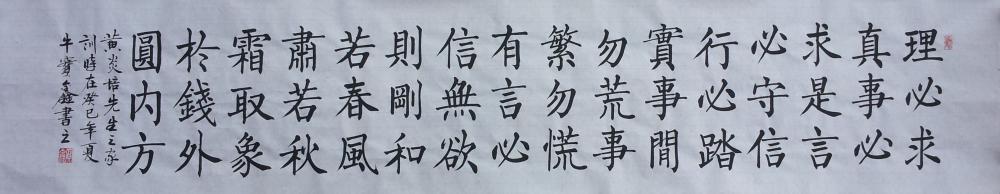 理必求
真事必
求是言
必守信
行必踏
實事閒
勿荒事
繁勿慌
有言必
信無欲
則剛和
若春風
肅若秋
霜取象
於錢外
圓内方
黄炎培先生之家
訓時在癸巳年夏
牛寶鑫書之